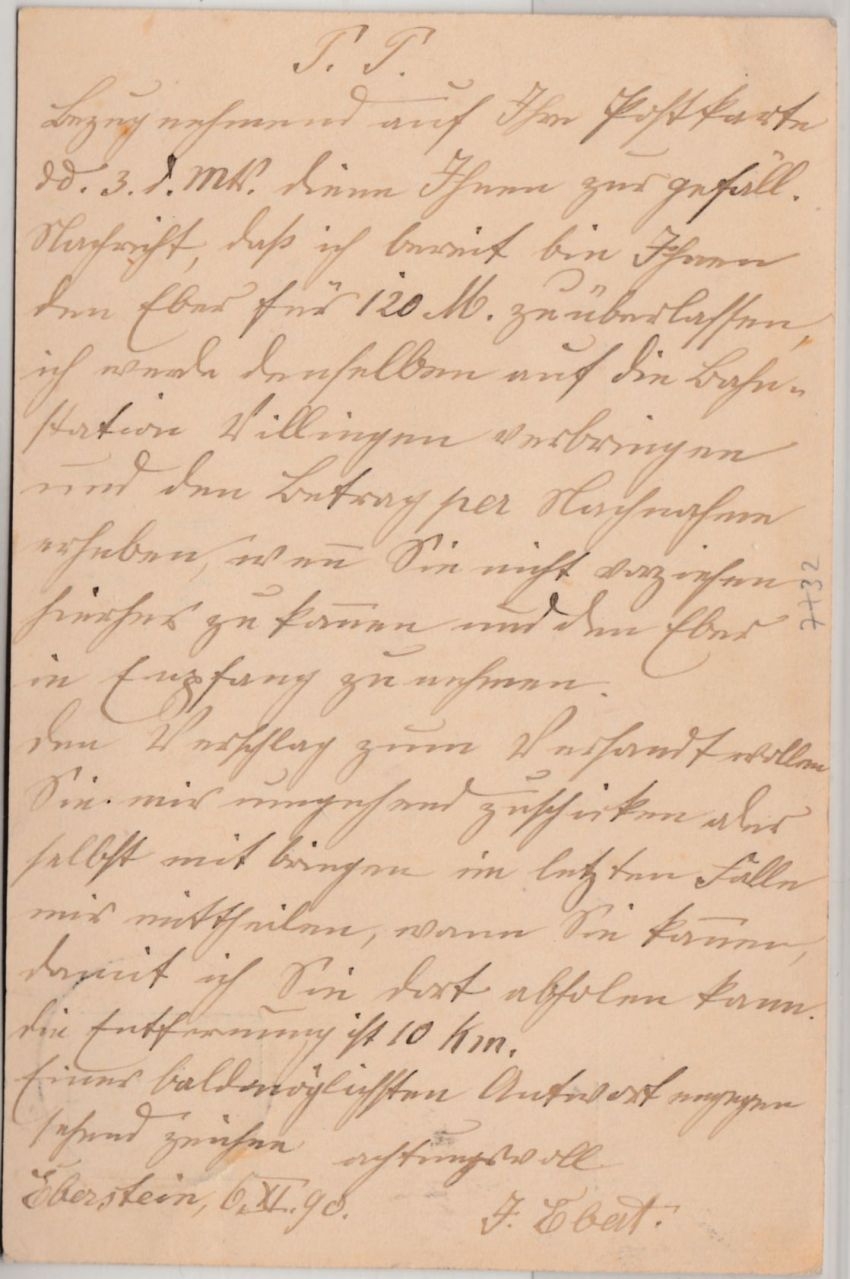 P. P.
Bezugnehmend auf Ihre Postkarte
dd. 3. d. Mts. diene Ihnen zur gefäll.
Nachricht, daß ich bereit bin Ihnen
den Eber für 120 M. zu überlassen,
ich werde denselben auf die Bahn-
station Villingen verbringen
und den Betrag per Nachnahme
erheben, wenn Sie nicht vorziehen
hierher zu kom̅en und den Eber
in Empfang zu nehmen.
Den Verschlag zum Versandt wollen
Sie mir umgehend zuschicken oder
selbst mit bringen im letzten Falle
mir mittheilen, wann Sie kom̅en,
damit ich Sie dort abholen kann.
die Entfernung ist 10 Km.
Einer baldmöglichsten Antwort entgegen
sehend zeichne achtungsvoll
Eberstein, 6.XI.90. J.
7+32